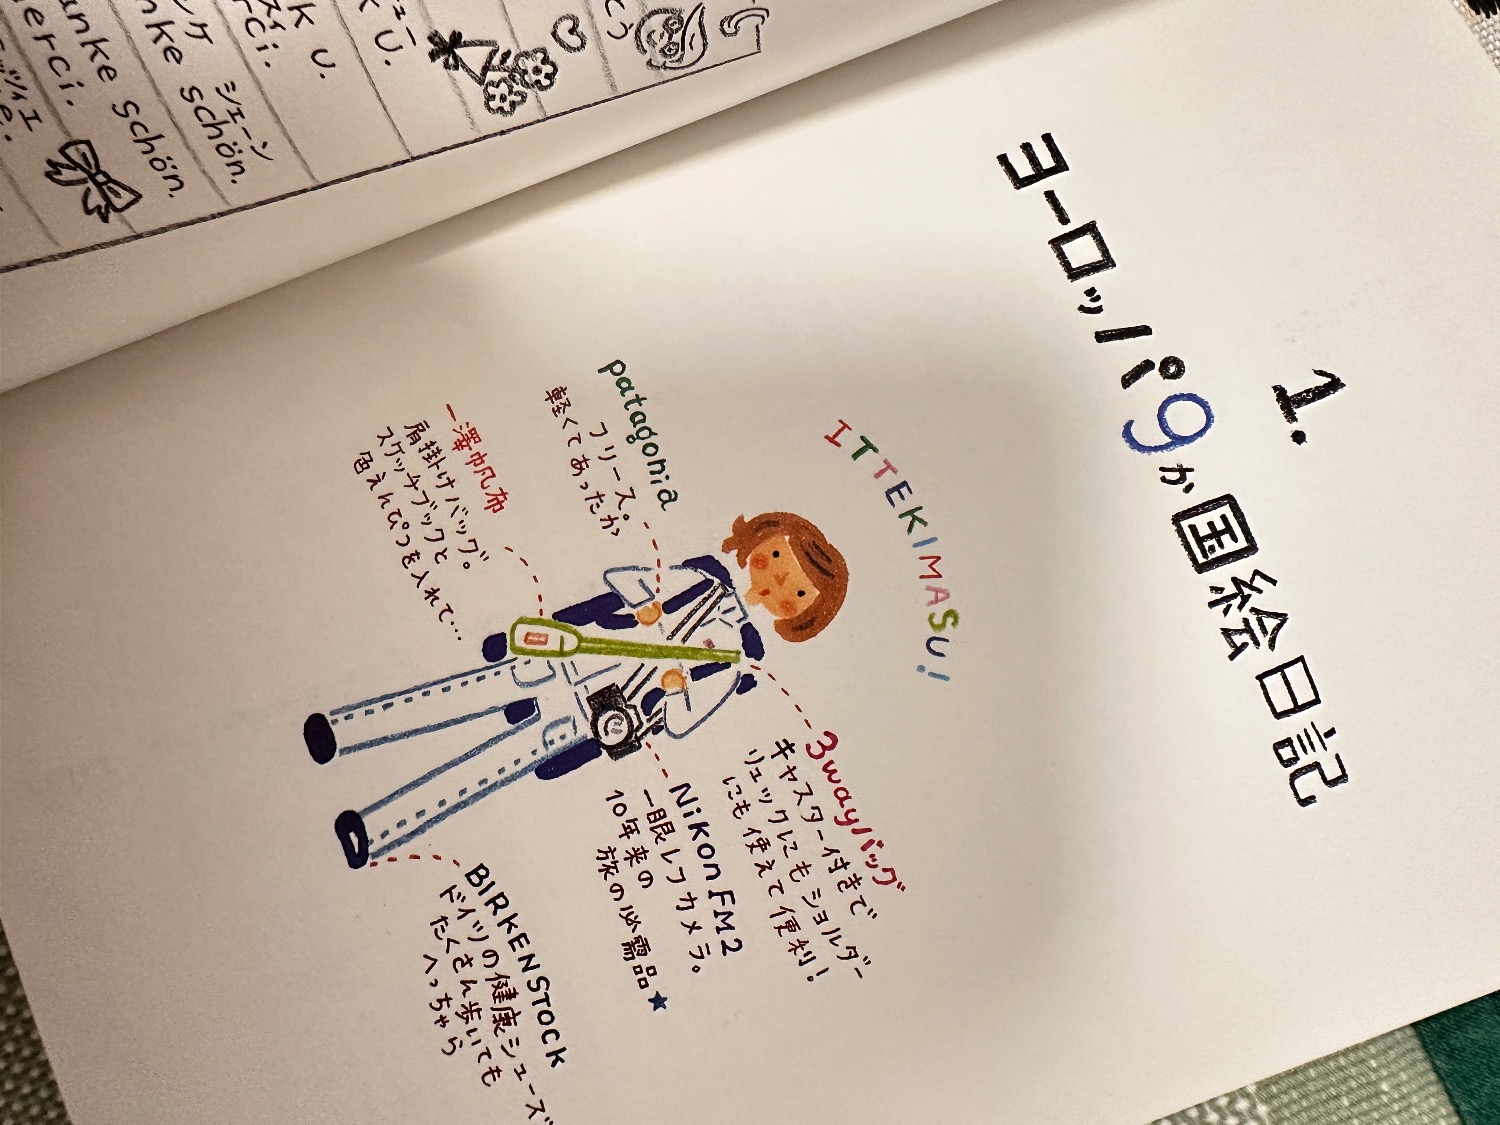 シェーン
anke schön.
nke schön.
erci.
k u.
1.
ヨーロッパ9か国絵日記
ITTEKIMASU!
patagonia
フリース。
軽くてあったか
一澤帆布
肩掛けバッグ。
スケッチブックと
色えんぴつを入れて…
3wayバッグ
キャスター付きで
リュックにもショルダー
にも使えて便利!
Nikon FM2
一眼レフカメラ。
10年来の
旅の必需品★
BIRKENSTOCK
ドイツの健康シューズ
たくさん歩いても
へっちゃら